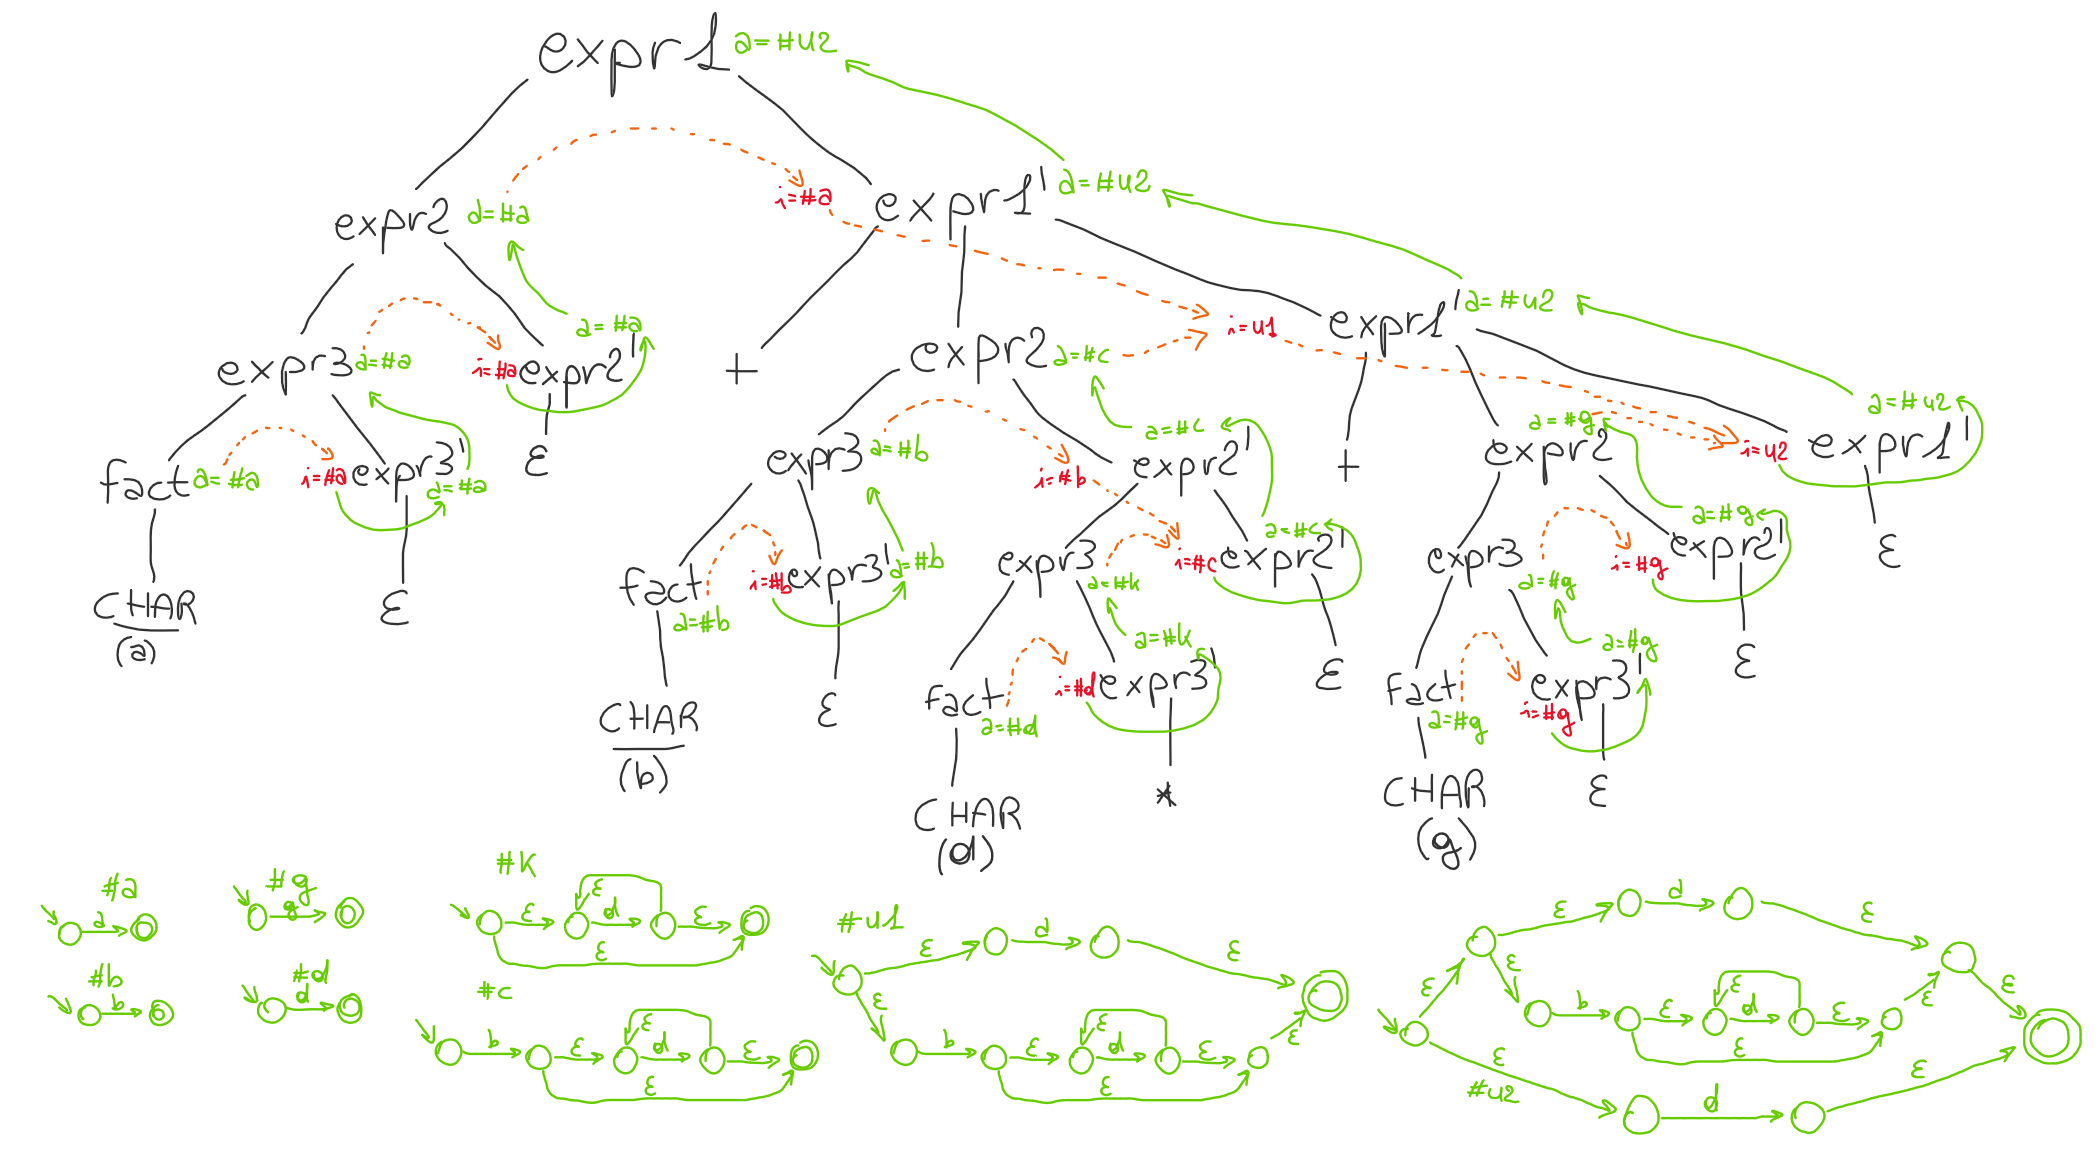 expr1 a=#u2
expr2 a=#a
i=#a expr1' a=#u2
expr3 a=#a
i=#a expr2' a=#a
+
expr2 a=#c
i=u1 expr1' a=#u2
fact a=#a
i=#a expr3' a=#a
ε
expr3 a=#b
i=#b expr2' a=#c
+
expr2 a=#g
i=u2 expr1' a=#u2
CHAR
(a)
ε
fact a=#b
i=#b expr3' a=#b
expr3 a=#k
i=#c expr2' a=#c
expr3 a=#g
i=#g expr2' a=#g
ε
CHAR
(b)
ε
fact a=#d
i=#d expr3' a=#k
ε
fact a=#g
i=#g expr3' a=#g
ε
CHAR
(d)
*
CHAR
(g)
ε
#a
a
#g
g
#b
b
#d
d
#k
ε ε d ε
ε
#c
b ε ε d ε
ε
#u1
ε a ε
ε b ε ε d ε ε
ε
ε a ε
ε ε b ε ε d ε ε ε
ε
ε
#u2
d ε